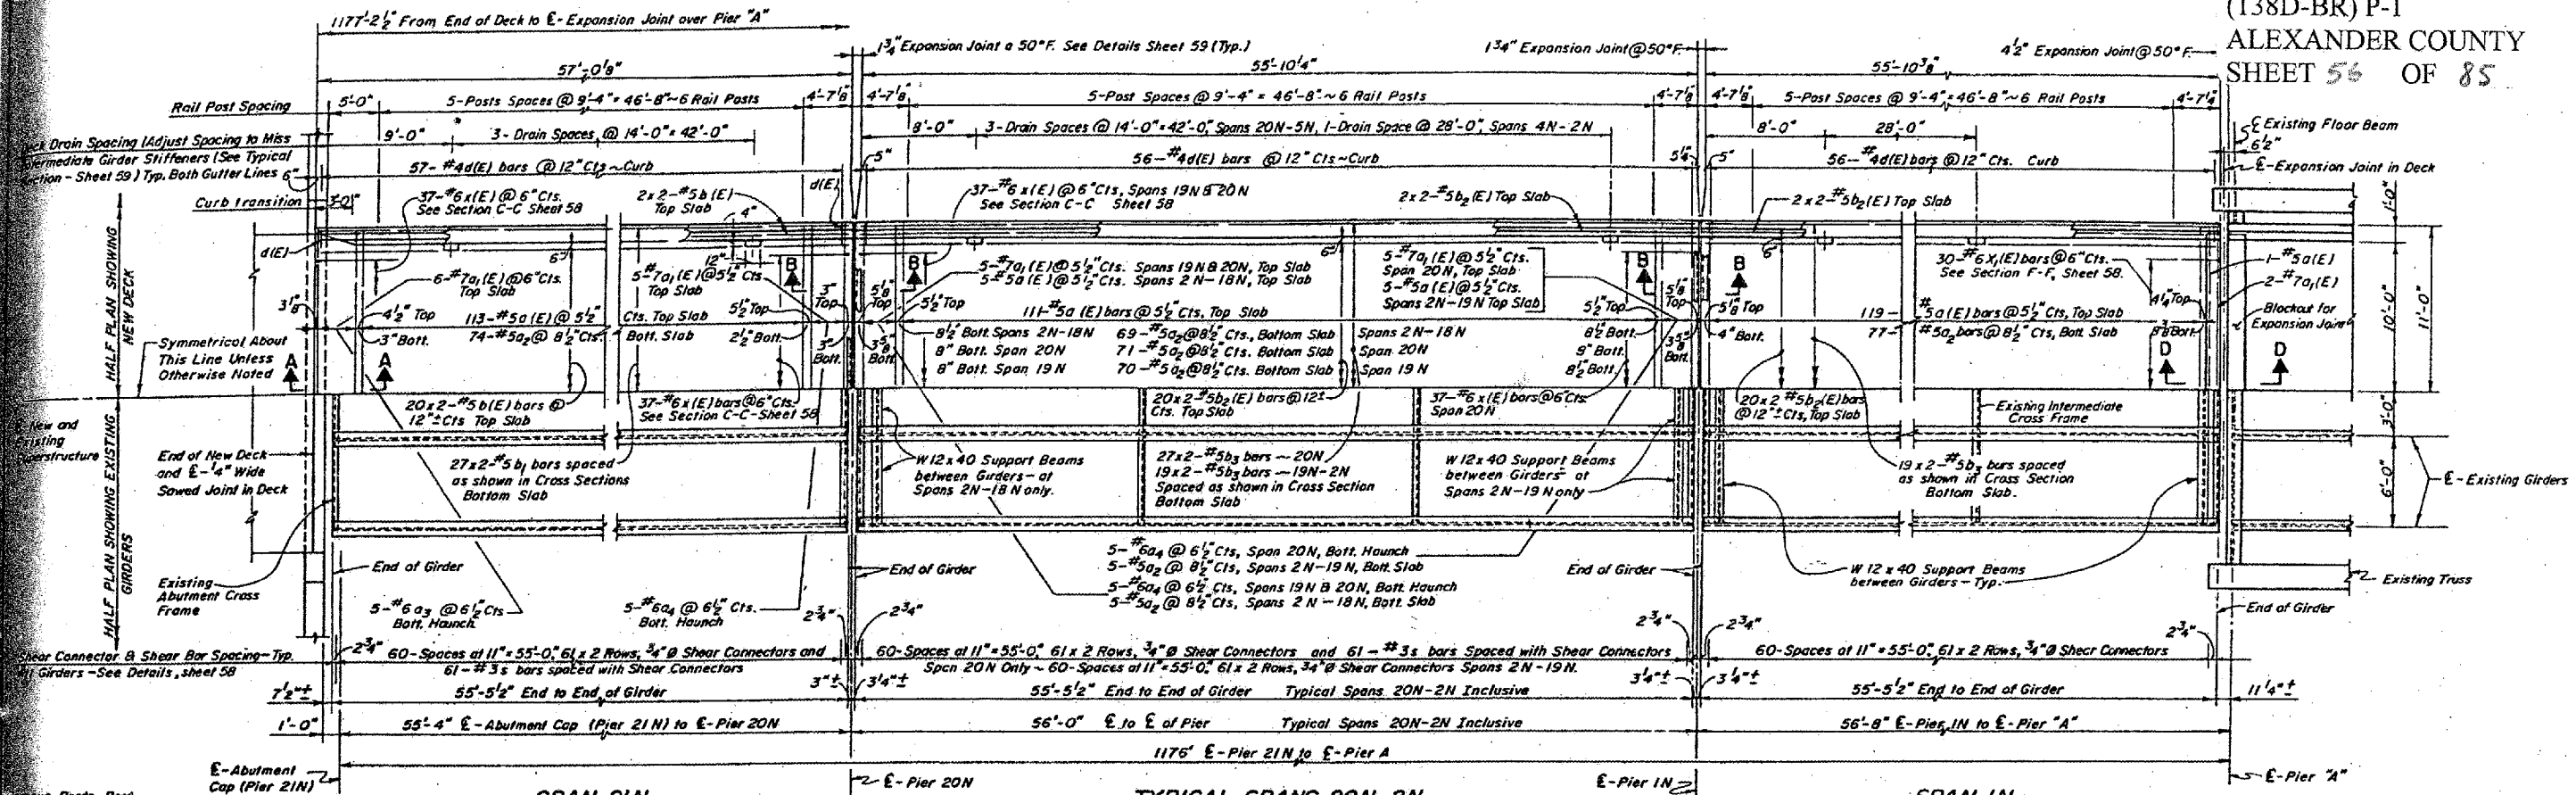 (138D-BR) P-1
ALEXANDER COUNTY
SHEET 56 OF 85
1177'-2½" From End of Deck to ℄-Expansion Joint over Pier "A"
1¾" Expansion Joint a 50°F. See Details Sheet 59 (Typ.)
1¾" Expansion Joint @ 50°F.
4½" Expansion Joint @ 50°F.
57'-0⅛"
55'-10¼"
55'-10⅜"
Rail Post Spacing
5'-0"
5-Posts Spaces @ 9'-4" = 46'-8" ~ 6 Rail Posts
4'-7⅛"
4'-7⅛"
5-Post Spaces @ 9'-4" = 46'-8" ~ 6 Rail Posts
4'-7⅛"
4'-7⅛"
5-Post Spaces @ 9'-4" = 46'-8" ~ 6 Rail Posts
4'-7¼"
Drain Spacing (Adjust Spacing to Miss
Intermediate Girder Stiffeners (See Typical
Section - Sheet 59) Typ. Both Gutter Lines
9'-0"
3- Drain Spaces, @ 14'-0" = 42'-0"
8'-0"
3-Drain Spaces @ 14'-0" = 42'-0", Spans 20N-5N, 1-Drain Space @ 28'-0", Spans 4N-2N
8'-0"
28'-0"
℄ Existing Floor Beam
6½"
℄-Expansion Joint in Deck
6"
57- #4d(E) bars @ 12" Cts ~ Curb
5"
56-#4d(E) bars @ 12" Cts ~ Curb
5¼"
5"
56-#4d(E) bars @ 12" Cts. Curb
Curb transition
3'-0"
37-#6 x(E) @ 6" Cts.
See Section C-C Sheet 58
2 x 2-#5 b(E)
Top Slab
d(E)
37-#6 x(E) @ 6" Cts, Spans 19N & 20N
See Section C-C Sheet 58
2 x 2-#5b₂(E) Top Slab
2 x 2-#5b₂(E) Top Slab
1'-0"
4"
d(E)
6"
12"
6"
6"
HALF PLAN SHOWING
NEW DECK
6-#7a₁(E) @ 6" Cts.
Top Slab
5-#7a₁(E) @ 5½" Cts.
Top Slab
B
B
5-#7a₁(E) @ 5½" Cts. Spans 19N & 20N, Top Slab
5-#5a(E) @ 5½" Cts. Spans 2N-18N, Top Slab
5-#7a₁(E) @ 5½" Cts.
Span 20N, Top Slab
5-#5a(E) @ 5½" Cts.
Spans 2N-19N Top Slab
B
B
30-#6 x₁(E) bars @ 6" Cts.
See Section F-F, Sheet 58.
1-#5a(E)
2-#7a₁(E)
Blockout for
Expansion Joint
3⅛"
4½" Top
3" Bott.
113-#5a(E) @ 5½" Cts. Top Slab
74-#5a₂ @ 8½" Cts. Bott. Slab
5½" Top
2½" Bott.
3"
Top
3"
Bott.
5⅛"
Top
3⅝"
Bott.
5½" Top
111-#5a(E) bars @ 5½" Cts, Top Slab
8½" Bott. Spans 2N-18N 69-#5a₂ @ 8½" Cts., Bottom Slab Spans 2N-18N
8" Bott. Span 20N 71-#5a₂ @ 8½" Cts. Bottom Slab Span 20N
8" Bott. Span 19N 70-#5a₂ @ 8½" Cts. Bottom Slab Span 19N
5½" Top
8½" Bott.
9" Bott.
8½" Bott.
5⅛"
Top
3⅝"
Bott.
5⅛" Top
4" Bott.
119-#5a(E) bars @ 5½" Cts, Top Slab
77-#5a₂ bars @ 8½" Cts, Bott. Slab
4¼" Top
10'-0"
11'-0"
Symmetrical About
This Line Unless
Otherwise Noted
A
A
D
D
20 x 2-#5 b(E) bars @
12"± Cts Top Slab
37-#6 x(E) bars @ 6" Cts.
See Section C-C-Sheet 58
20 x 2-#5b₂(E) bars @ 12"±
Cts. Top Slab
37-#6 x(E) bars @ 6" Cts.
Span 20N
20 x 2 #5b₂(E) bars
@ 12"± Cts, Top Slab
Existing Intermediate
Cross Frame
3'-0"
New and
Existing
Superstructure
End of New Deck
and ℄-¼" Wide
Sawed Joint in Deck
27 x 2-#5 b₁ bars spaced
as shown in Cross Sections
Bottom Slab
W 12 x 40 Support Beams
between Girders- at
Spans 2N-18N only.
27 x 2-#5b₃ bars - 20N
19 x 2-#5b₃ bars - 19N-2N
Spaced as shown in Cross Section
Bottom Slab
W 12 x 40 Support Beams
between Girders- at
Spans 2N-19N only
19 x 2-#5b₃ bars spaced
as shown in Cross Section
Bottom Slab.
6'-0"
℄-Existing Girders
HALF PLAN SHOWING EXISTING
GIRDERS
Existing
Abutment Cross
Frame
End of Girder
5-#6a₃ @ 6½" Cts
Bott. Haunch
5-#6a₄ @ 6½" Cts.
Bott. Haunch
End of Girder
5-#6a₄ @ 6½" Cts, Span 20N, Bott. Haunch
5-#5a₂ @ 8½" Cts, Spans 2N-19N, Bott. Slab
5-#6a₄ @ 6½" Cts, Spans 19N & 20N, Bott. Haunch
5-#5a₂ @ 8½" Cts, Spans 2N-18N, Bott. Slab
End of Girder
W 12 x 40 Support Beams
between Girders - Typ.
Existing Truss
End of Girder
2¾"
2¾"
2¾"
2¾"
2¾"
Shear Connector & Shear Bar Spacing-Typ.
Girders-See Details, sheet 58
2¾"
60-Spaces at 11" = 55'-0", 61 x 2 Rows, ¾"Ø Shear Connectors and
61-#3s bars spaced with Shear Connectors
60-Spaces at 11" = 55'-0", 61 x 2 Rows, ¾"Ø Shear Connectors and 61-#3s bars Spaced with Shear Connectors
Span 20N Only ~ 60-Spaces at 11" = 55'-0", 61 x 2 Rows, ¾"Ø Shear Connectors Spans 2N-19N.
60-Spaces at 11" = 55'-0", 61 x 2 Rows, ¾"Ø Shear Connectors
7½"±
55'-5½" End to End of Girder
3"±
3¼"±
55'-5½" End to End of Girder Typical Spans 20N-2N Inclusive
3¼"±
3¼"±
55'-5½" End to End of Girder
11¼"±
1'-0"
55'-4" ℄-Abutment Cap (Pier 21N) to ℄-Pier 20N
56'-0" ℄ to ℄ of Pier Typical Spans 20N-2N Inclusive
56'-8" ℄-Pier 1N to ℄-Pier "A"
1176' ℄-Pier 21N to ℄-Pier A
℄-Abutment
Cap (Pier 21N)
℄-Pier 20N
℄-Pier 1N
℄-Pier "A"